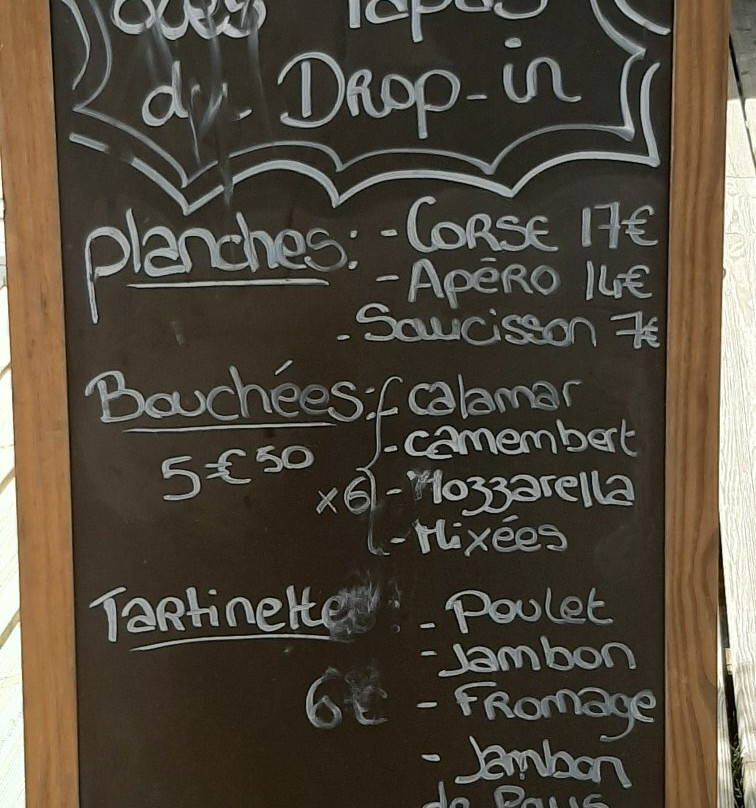 Tapas
du Drop-in
Planches: - CORSE 17€
- Apéro 14€
- Saucisson 7€
Bouchées: - calamar
- camembert
5€50 x6 - Mozzarella
- Mixées
Tartinette : - Poulet
- Jambon
6€ - FROMAGE
- Jambon
de Pays